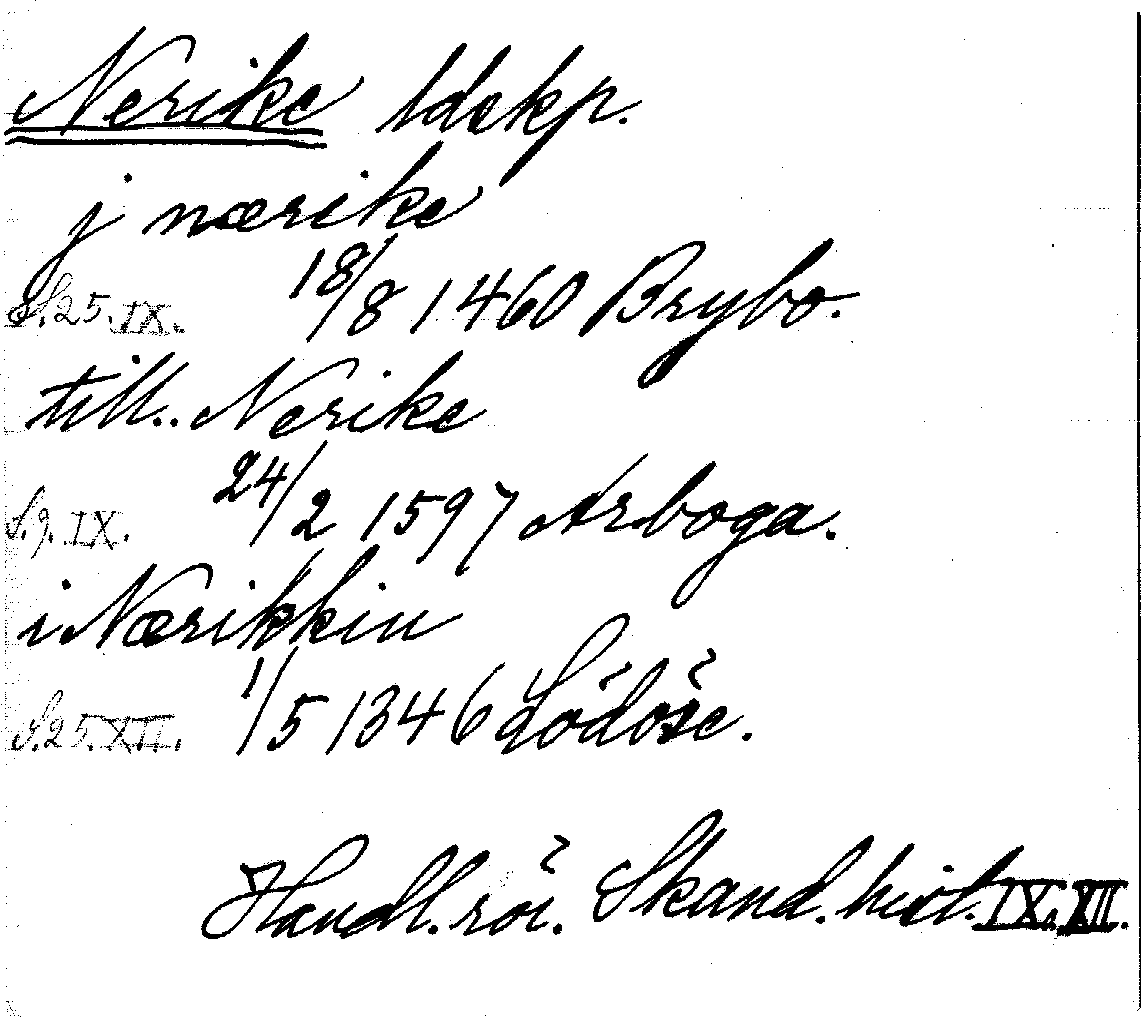 Nerike ldskp.
j nærike
S.25.IX. 18/8 1460 Brybo.
till.. Nerike
S.9.IX. 24/2 1597 Arboga.
i Nærikkiu
S.25.XII. 1/5 1346 Lödöse.
Handl. rör. Skand. hist. IX. XII.